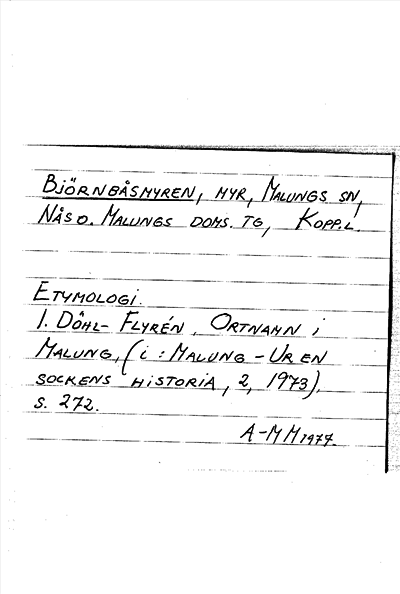 BJÖRNBÅSMYREN, MYR, MALUNGS SN,
NÅS O. MALUNGS DOMS. TG, KOPP.L.
ETYMOLOGI.
I. DÖHL-FLYRÉN, ORTNAMN I
MALUNG, (I: MALUNG - UR EN
SOCKENS HISTORIA, 2, 1973),
S. 272.
A-MM 1977.